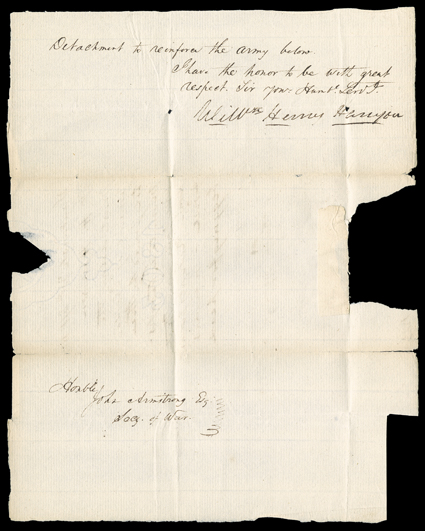 Detachment to reinforce the army below.
I have the honor to be with great
respect. Sir your Humb. Servt.
Willm Henry Harrison
Honble
John Armstrong Esq
Secy. of War